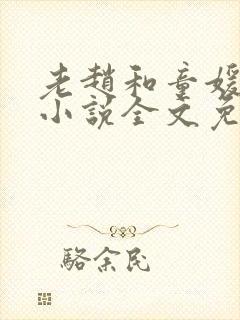 老趙和童媛
小說全文免
駱余民